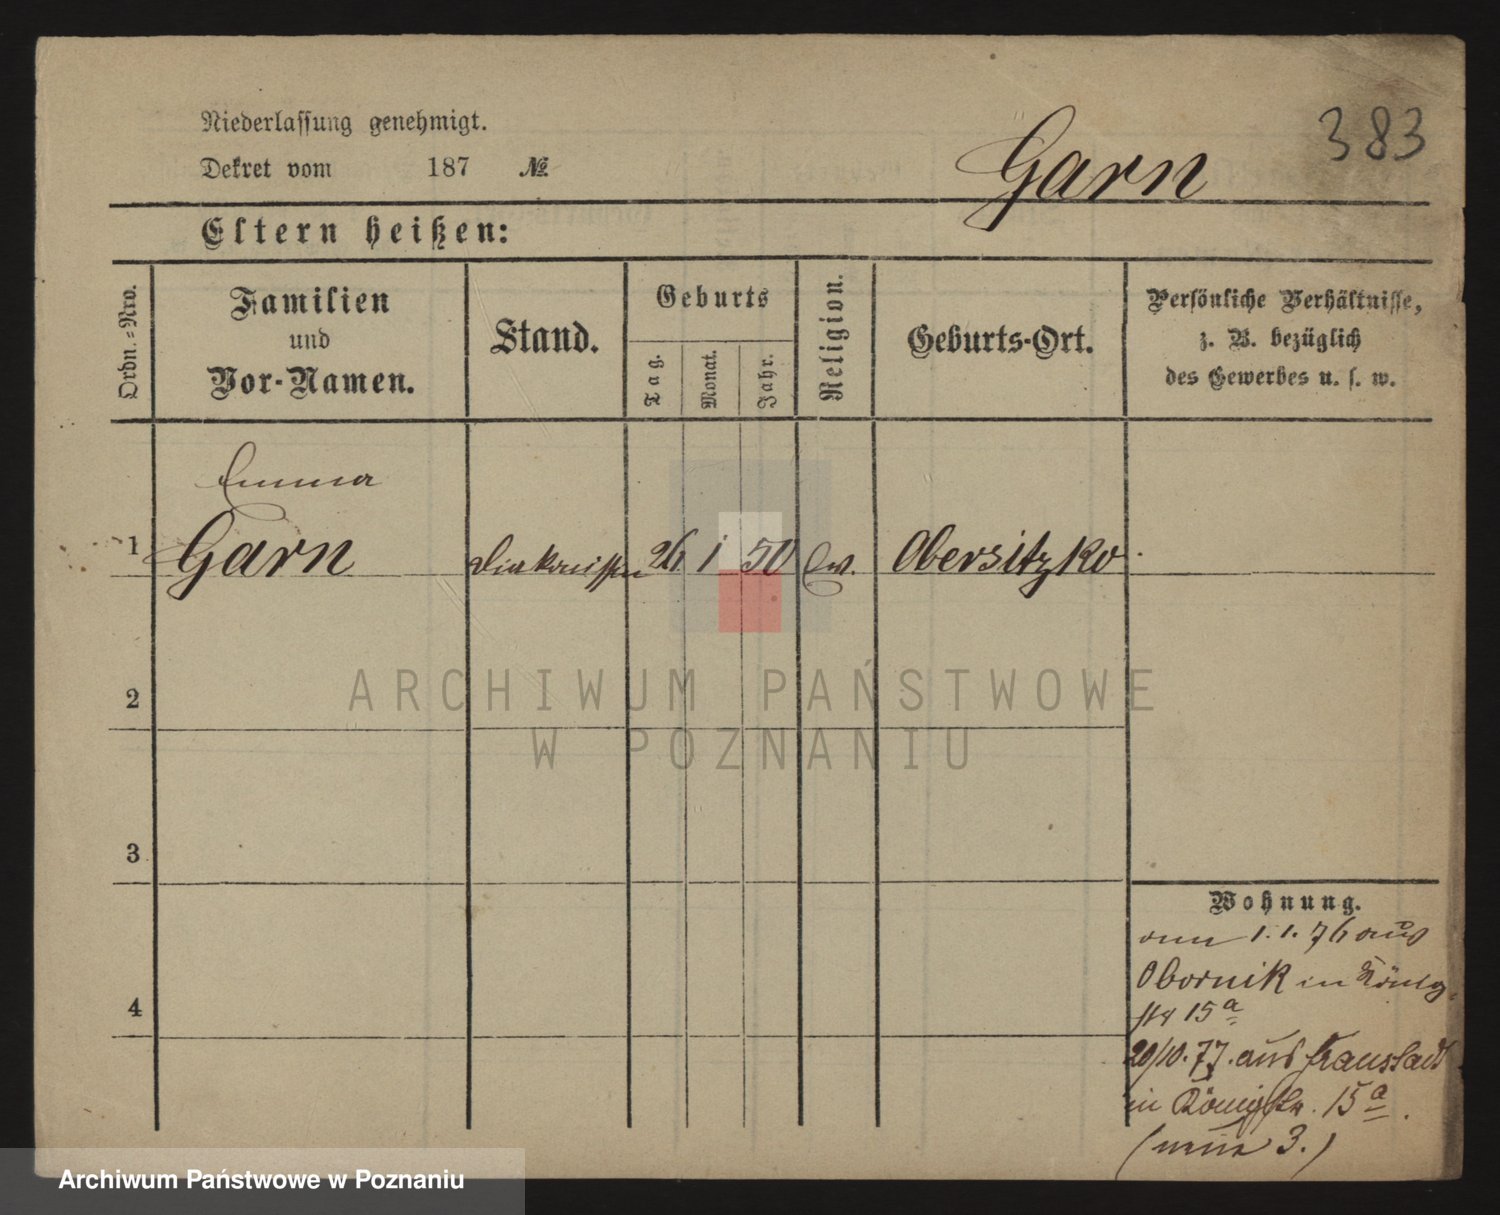 Niederlassung genehmigt.
Dekret vom 187 №
Garn
383
Eltern heißen:
Ordn.=Nro.
Familien
und
Vor-Namen.
Stand.
Geburts
Tag.
Monat.
Jahr.
Religion.
Geburts-Ort.
Persönliche Verhältnisse,
z. B. bezüglich
des Gewerbes u. s. w.
Emma
1 Garn Diakonissin 26 1 50 Ev. Obersitzko.
2
3
4
ARCHIWUM PAŃSTWOWE
W POZNANIU
Wohnung.
1.1.76 aus
Obornik in König=
str 15a
20/10.77. aus Fraustadt
in Königstr. 15a.
(3.)
Archiwum Państwowe w Poznaniu